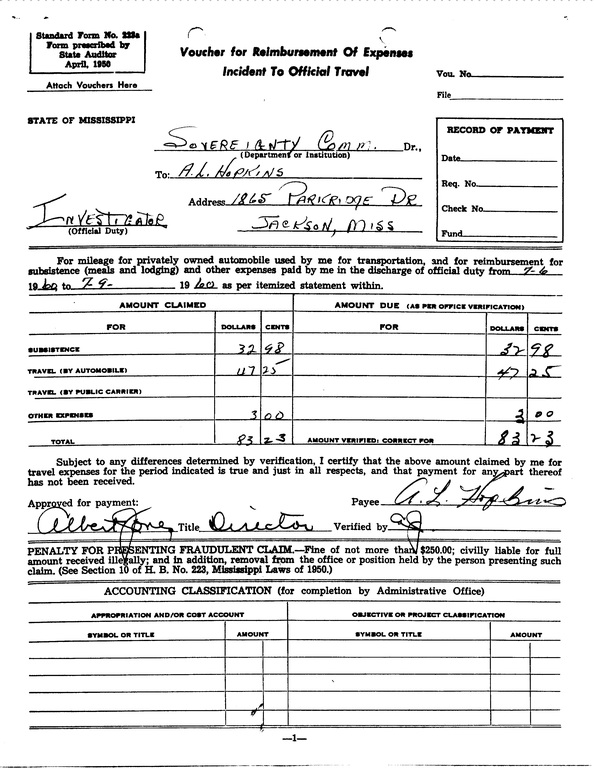 Standard Form No. 223a
Form prescribed by
State Auditor
April, 1950
Attach Vouchers Here
Voucher for Reimbursement Of Expenses
Incident To Official Travel
Vou. No.
File
STATE OF MISSISSIPPI
SOVEREIGNTY COMM. Dr.,
(Department or Institution)
To: A.L. HOPKINS
Address 1865 PARKRIDGE DR
JACKSON, MISS
INVESTIGATOR
(Official Duty)
RECORD OF PAYMENT
Date
Req. No.
Check No.
Fund
For mileage for privately owned automobile used by me for transportation, and for reimbursement for
subsistence (meals and lodging) and other expenses paid by me in the discharge of official duty from 7-6
1960 to 7-9- 1960 as per itemized statement within.
AMOUNT CLAIMED AMOUNT DUE (AS PER OFFICE VERIFICATION)
FOR DOLLARS CENTS FOR DOLLARS CENTS
SUBSISTENCE 32 98 32 98
TRAVEL (BY AUTOMOBILE) 47 25 47 25
TRAVEL (BY PUBLIC CARRIER)
OTHER EXPENSES 3 00 3 00
TOTAL 83 23 AMOUNT VERIFIED; CORRECT FOR 83 23
Subject to any differences determined by verification, I certify that the above amount claimed by me for
travel expenses for the period indicated is true and just in all respects, and that payment for any part thereof
has not been received.
Payee A. L. Hopkins
Approved for payment:
Albert Jones Title Director Verified by AJ
PENALTY FOR PRESENTING FRAUDULENT CLAIM.—Fine of not more than $250.00; civilly liable for full
amount received illegally; and in addition, removal from the office or position held by the person presenting such
claim. (See Section 10 of H. B. No. 223, Mississippi Laws of 1950.)
ACCOUNTING CLASSIFICATION (for completion by Administrative Office)
APPROPRIATION AND/OR COST ACCOUNT OBJECTIVE OR PROJECT CLASSIFICATION
SYMBOL OR TITLE AMOUNT SYMBOL OR TITLE AMOUNT
—1—